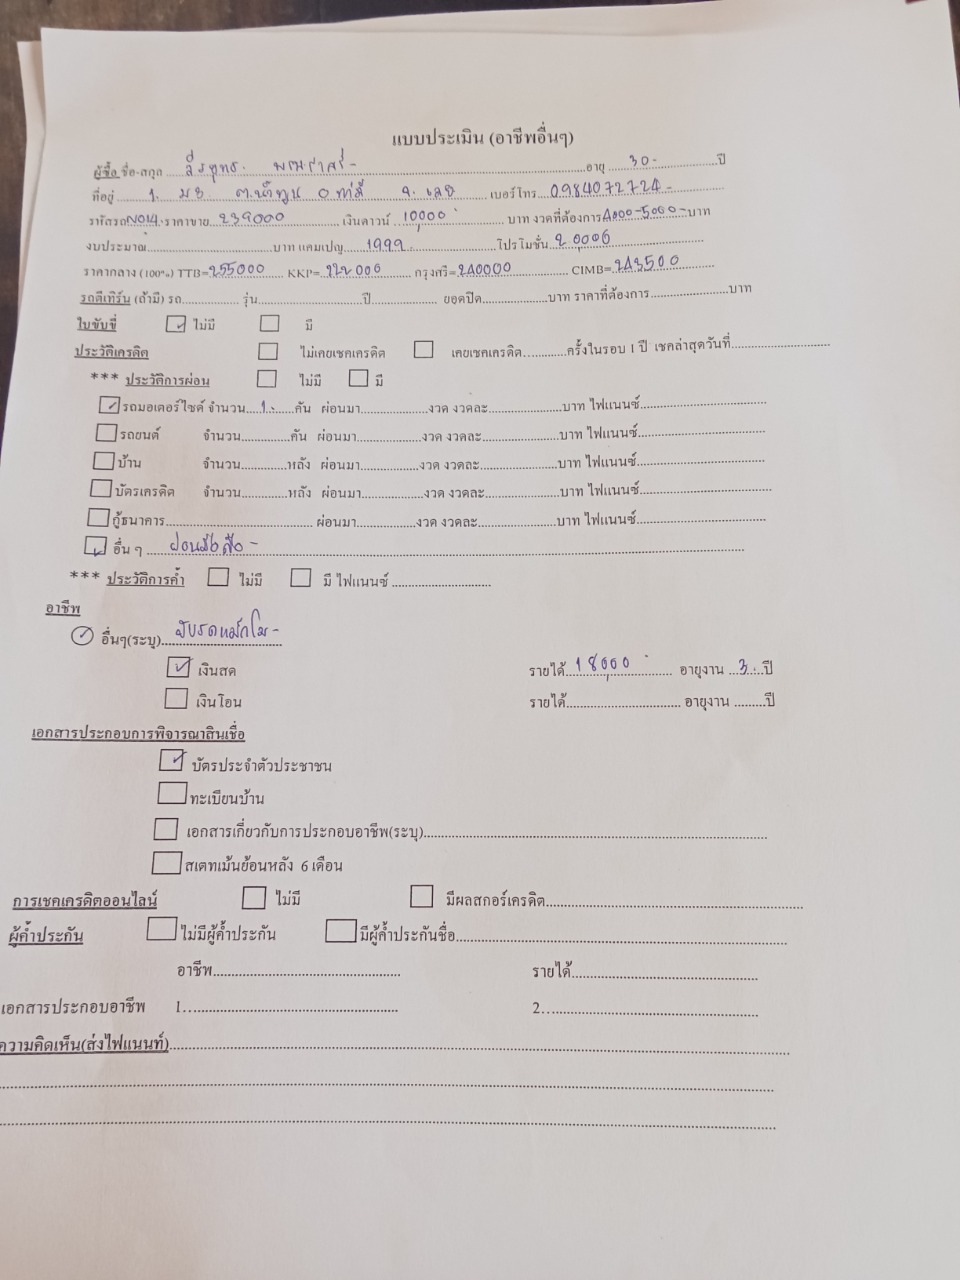 แบบประเมิน (อาชีพอื่นๆ)
ผู้ซื้อ ชื่อ-สกุล อายุ 30- ปี
ที่อยู่ 1. ม3 ต.น้ำทูน อ ท่าลี่ จ. เลย เบอร์โทร 0984072724-
รหัสรถ N014 ราคาขาย 239000 เงินดาวน์ 10,000 บาท งวดที่ต้องการ 4000-5000- บาท
งบประมาณ บาท แคมเปญ 1999. โปรโมชั่น 20,000
ราคากลาง (100%) TTB= 255000 KKP= 222000 กรุงศรี= 240000 CIMB= 243500
รถตีเทิร์น (ถ้ามี) รถ รุ่น ปี ยอดปิด บาท ราคาที่ต้องการ บาท
ใบขับขี่ ไม่มี มี
ประวัติเครดิต ไม่เคยเชคเครดิต เคยเชคเครดิต ครั้งในรอบ 1 ปี เชคล่าสุดวันที่
*** ประวัติการผ่อน ไม่มี มี
รถมอเตอร์ไซด์ จำนวน 1. คัน ผ่อนมา งวด งวดละ บาท ไฟแนนซ์
รถยนต์ จำนวน คัน ผ่อนมา งวด งวดละ บาท ไฟแนนซ์
บ้าน จำนวน หลัง ผ่อนมา งวด งวดละ บาท ไฟแนนซ์
บัตรเครดิต จำนวน หลัง ผ่อนมา งวด งวดละ บาท ไฟแนนซ์
กู้ธนาคาร ผ่อนมา งวด งวดละ บาท ไฟแนนซ์
อื่น ๆ ผ่อนมือถือ -
*** ประวัติการค้ำ ไม่มี มี ไฟแนนซ์
อาชีพ
อื่นๆ(ระบุ) ขับรถแม็คโคร -
เงินสด รายได้ 18,000 อายุงาน 3. ปี
เงินโอน รายได้ อายุงาน ปี
เอกสารประกอบการพิจารณาสินเชื่อ
บัตรประจำตัวประชาชน
ทะเบียนบ้าน
เอกสารเกี่ยวกับการประกอบอาชีพ(ระบุ)
สเตทเม้นย้อนหลัง 6 เดือน
การเชคเครดิตออนไลน์ ไม่มี มีผลสกอร์เครดิต
ผู้ค้ำประกัน ไม่มีผู้ค้ำประกัน มีผู้ค้ำประกันชื่อ
อาชีพ รายได้
เอกสารประกอบอาชีพ 1 2
ความคิดเห็น(ส่งไฟแนนท์)